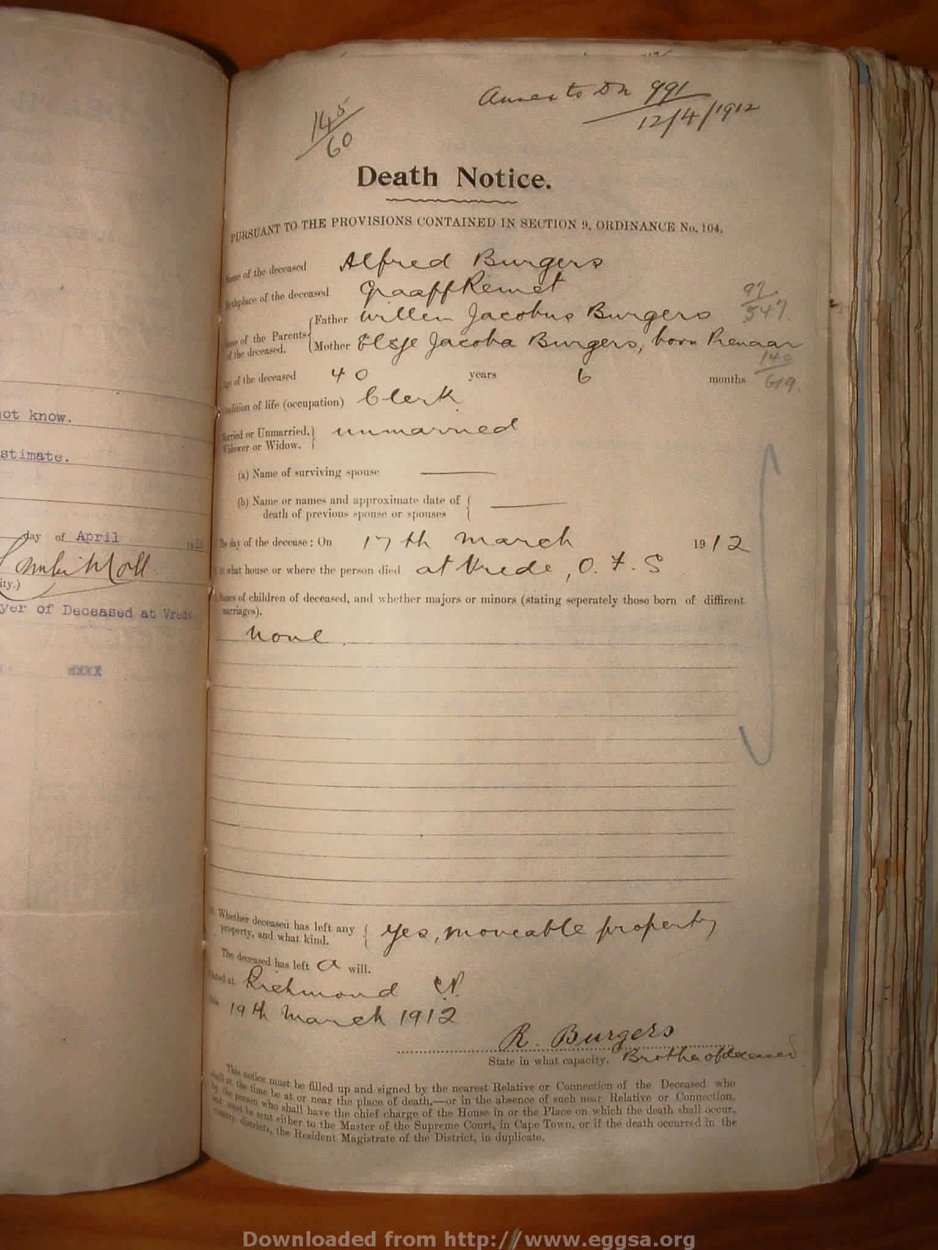 Annex to DN 991
12/4/1912
145/60
Death Notice.
PURSUANT TO THE PROVISIONS CONTAINED IN SECTION 9, ORDINANCE No. 104.
Name of the deceased Alfred Burgers
Birthplace of the deceased Graaff Reinet
Name of the Parents of the deceased. { Father Willem Jacobus Burgers
Mother Elsje Jacoba Burgers, born Pienaar
97
547.
140
619.
Age of the deceased 40 years 6 months
Condition of life (occupation) Clerk
Married or Unmarried. } unmarried
Widower or Widow.
(a) Name of surviving spouse
(b) Name or names and approximate date of {
death of previous spouse or spouses
The day of the decease: On 17th March 1912
At what house or where the person died at Vrede, O. F. S
Names of children of deceased, and whether majors or minors (stating seperately those born of diffirent
marriages).
None
Whether deceased has left any { Yes, moveable property
property, and what kind.
The deceased has left a will.
Dated at Richmond CP.
this 19th March 1912
R. Burgers
State in what capacity. Brother of deceased
This notice must be filled up and signed by the nearest Relative or Connection of the Deceased who
shall at the time be at or near the place of death,—or in the absence of such near Relative or Connection,
by the person who shall have the chief charge of the House in or the Place on which the death shall occur,
and must be sent either to the Master of the Supreme Court, in Cape Town, or if the death occurred in the
country districts, the Resident Magistrate of the District, in duplicate.
not know.
stimate.
day of April 191
ity.)
yer of Deceased at Vrede
Downloaded from http://www.eggsa.org